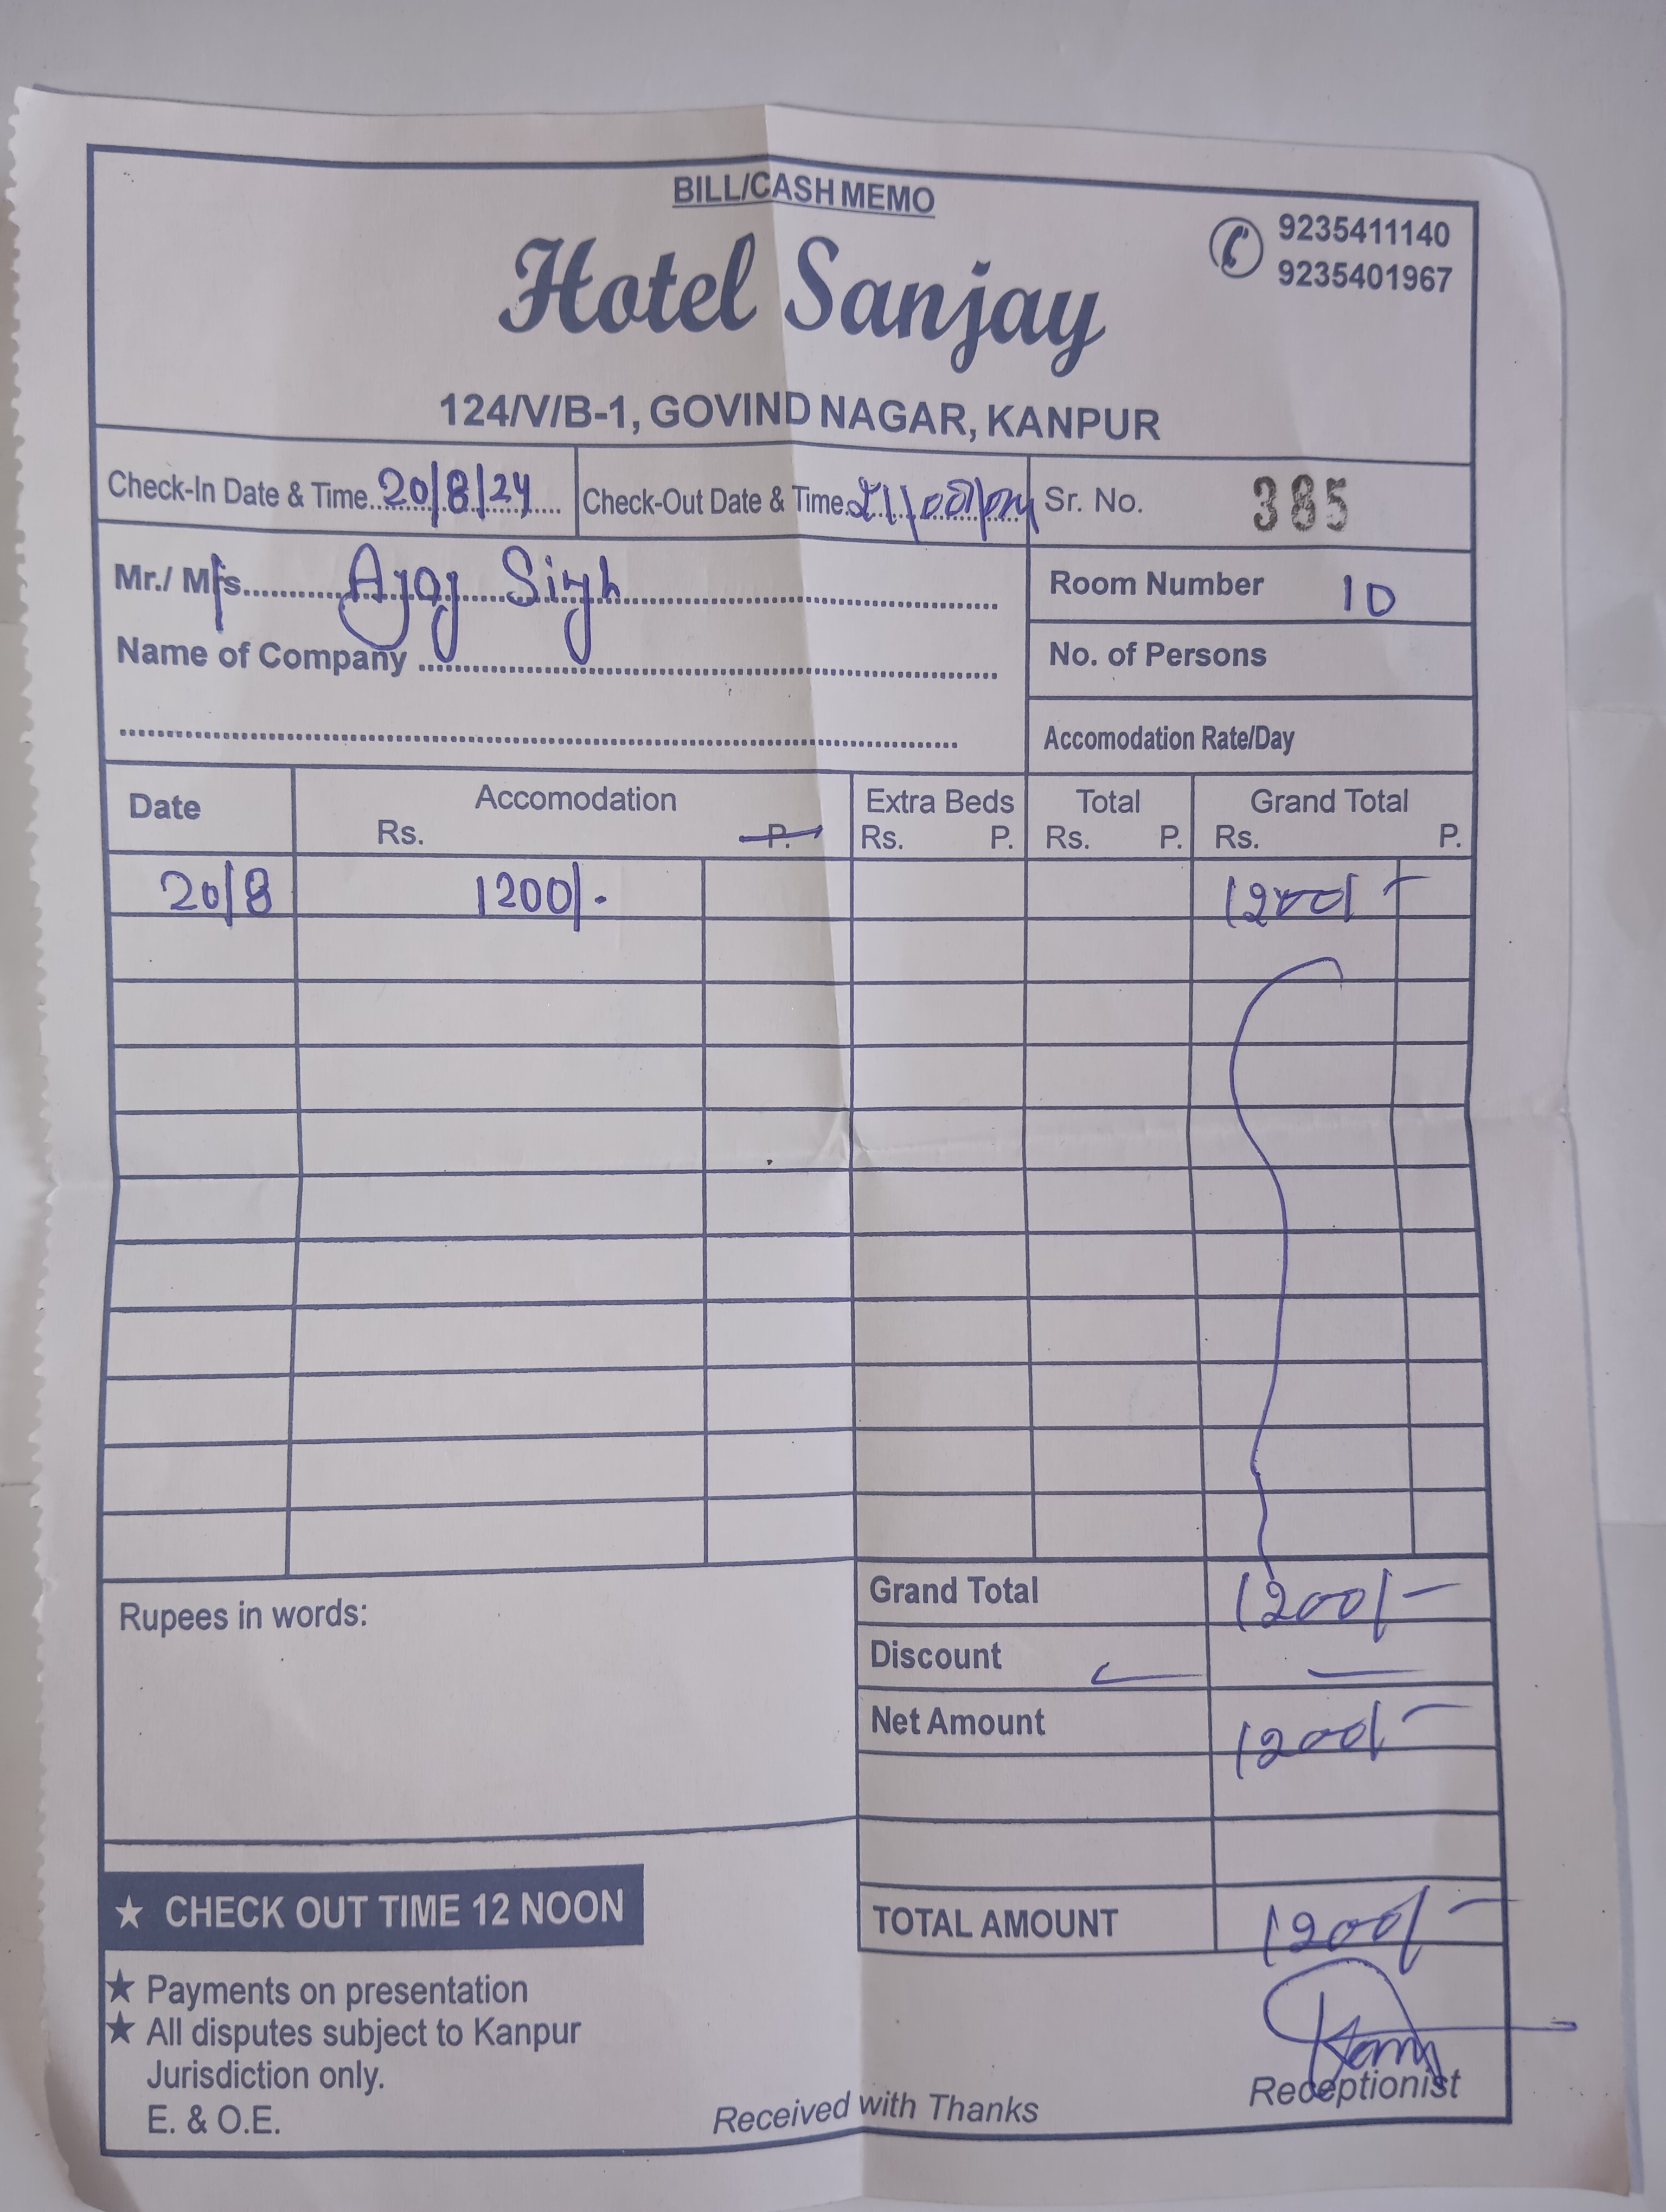 BILL/CASH MEMO
9235411140
9235401967
Hotel Sanjay
124/V/B-1, GOVIND NAGAR, KANPUR
Check-In Date & Time 20/8/24 Check-Out Date & Time Sr. No. 385
Mr./ M/s Ajay Singh
Room Number 10
Name of Company
No. of Persons
Accomodation Rate/Day
Date Accomodation Extra Beds Total Grand Total
Rs. P. Rs. P. Rs. P. Rs. P.
20/8 1200/- 1200/-
Grand Total 1200/-
Rupees in words:
Discount —
Net Amount 1200/-
★ CHECK OUT TIME 12 NOON
TOTAL AMOUNT 1200/-
★ Payments on presentation
★ All disputes subject to Kanpur
Jurisdiction only.
E. & O.E.
Received with Thanks
Receptionist